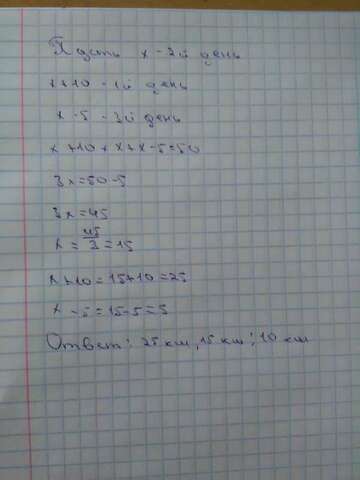 Пусть x - 2й день
x+10 - 1й день
x - 5 - 3й день
x+10+x+x-5=50
3x=50-5
3x=45
x = 45/3 = 15
x+10=15+10=25
x - 5 = 15-5=5
Ответ: 25 км, 15 км; 10 км